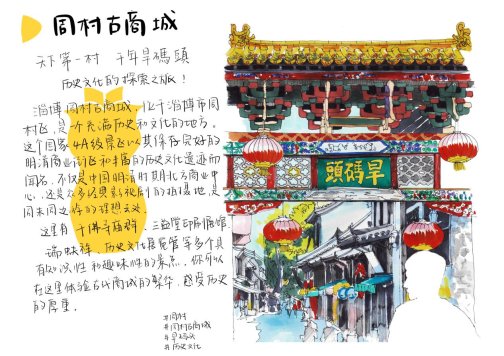 周村古商城
天下第一村 千年旱碼頭
历史文化的探索之旅!
淄博周村古商城,位于淄博市周
村区,是一个充满历史和文化的地方。
这个国家4A级景区以其保存良好的
明清商业街区和丰富的历史文化遗迹而
闻名,不仅是中国明清时期北方商业中
心,还是众多经典影视剧的拍摄地,是
周末周边游的理想去处。
这里有千佛寺庙群、三益堂印刷展馆、
瑞蚨祥、历史文化展览馆等多个具
有知识性和趣味性的景点,你可以
在这里体验古代商城的繁华,感受历史
的厚重。
#周村
#周村古商城
#旱码头
#历史文化
旱碼頭